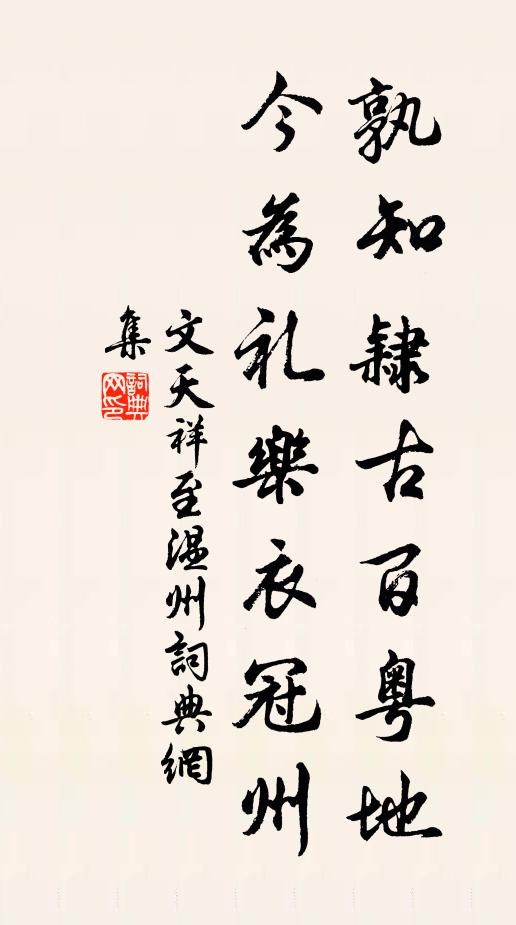 孰知隸古百粤地
今為礼樂衣冠州
文天祥至温州詞典網
集
詞典
网印